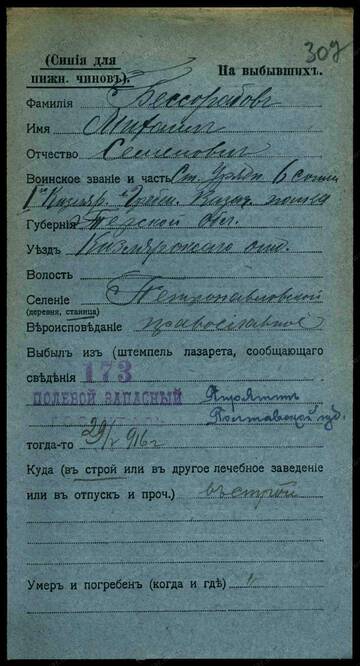 307
(Синія для
нижн. чиновъ).
На выбывшихъ.
Фамилія Бессорабовъ
Имя Михаилъ
Отчество Семеновичъ
Воинское званіе и часть Ст. Урядн 6 сотни
1го Кизляр. Гребен. Казач. полка
Губернія Терской обл.
Уѣздъ Кизлярскаго отд.
Волость
Селеніе Петропавловской
(деревня, станица)
Вѣроисповѣданіе православное
Выбылъ изъ (штемпель лазарета, сообщающаго
свѣдѣнія 173
ПОЛЕВОЙ ЗАПАСНЫЙ Пирятинъ
Полтавской губ.
тогда-то 29/X 916 г
Куда (въ строй или въ другое лечебное заведеніе
или въ отпускъ и проч.) въ строй
Умеръ и погребенъ (когда и гдѣ) "